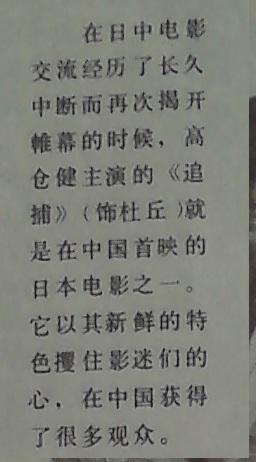 在日中电影
交流经历了长久
中断而再次揭开
帷幕的时候，高
仓健主演的《追
捕》（饰杜丘）就
是在中国首映的
日本电影之一。
它以其新鲜的特
色攫住影迷们的
心，在中国获得
了很多观众。